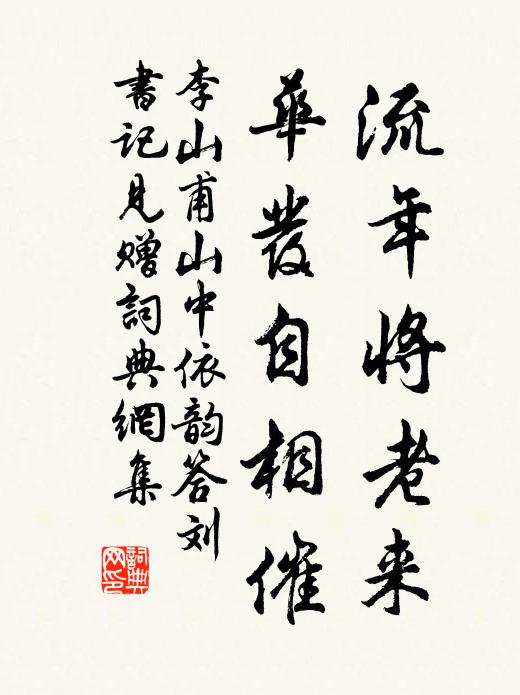 流年将老来
華發自相催
李山甫山中依韵答刘
書记見赠詞典網集
詞典网印